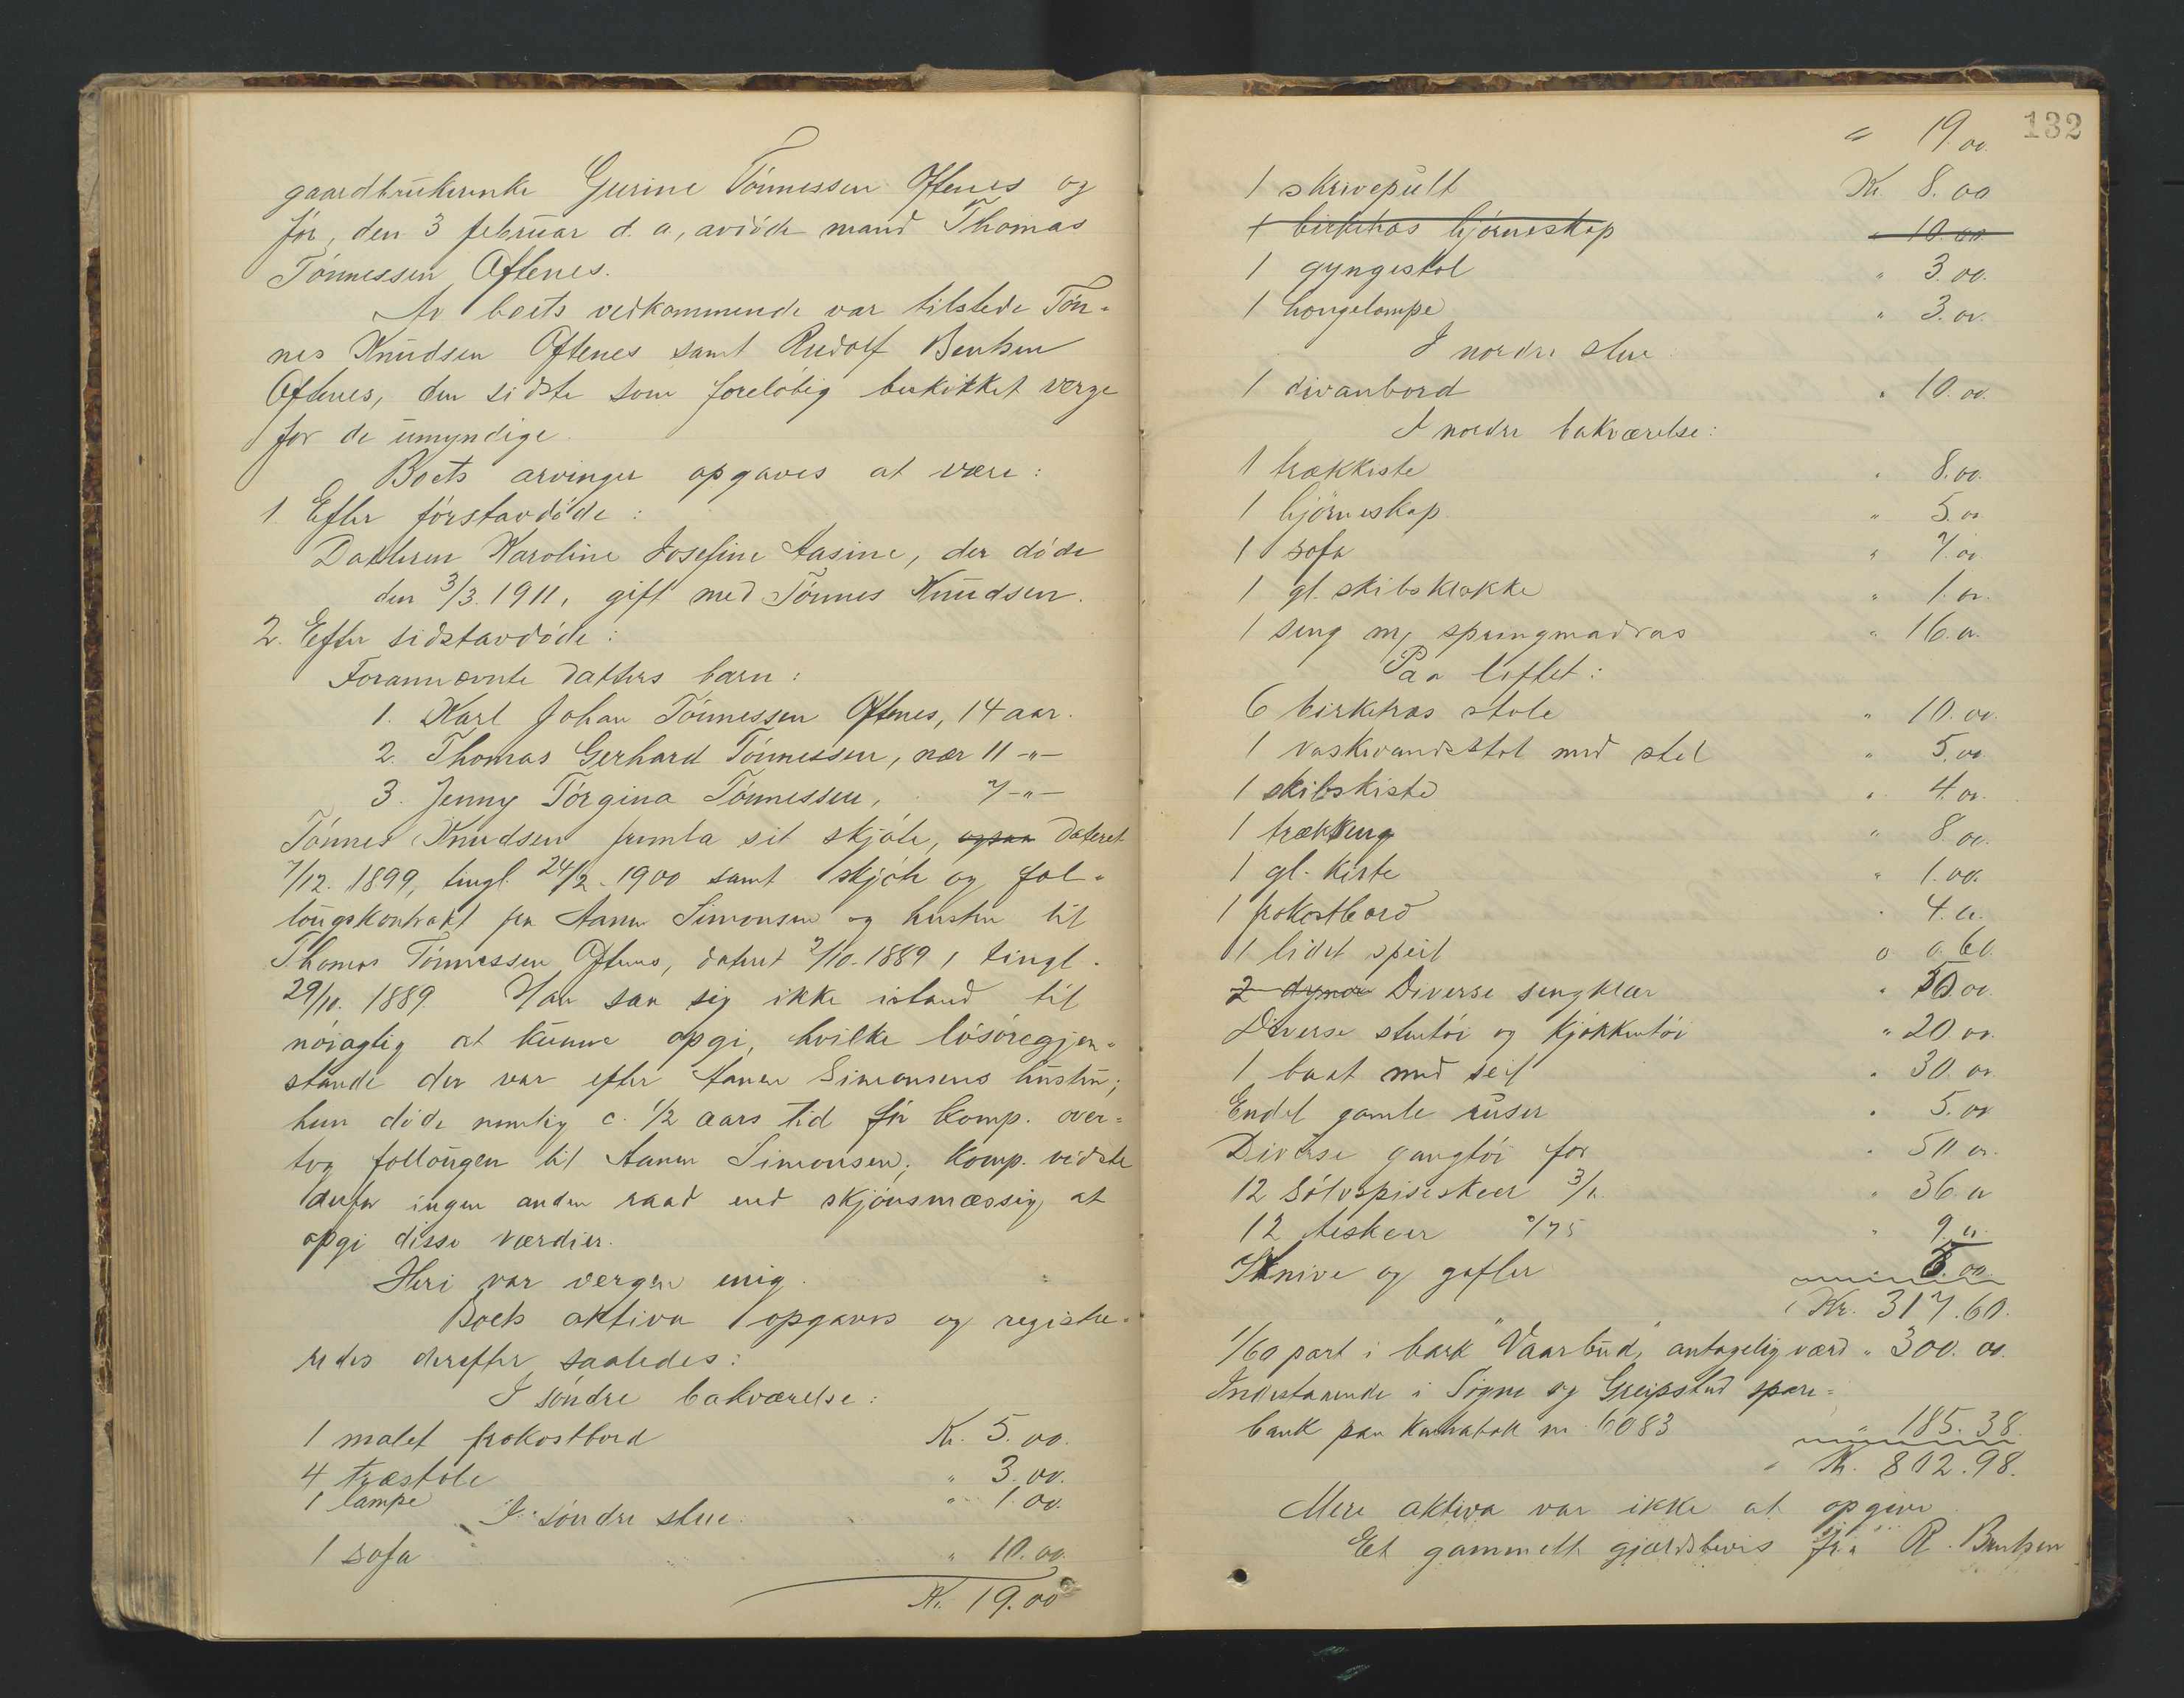 gaardbrukerenke Gurine Tönnessen Oftenes og
för, den 3 februar d. a, avdöde mand Thomas
Tönnessen Oftenes.
Av boets vedkommende var tilstede Tön-
nes Knudsen Oftenes samt Rudolf Bentsen
Oftenes, den sidste som forelöbig beskikket verge
for de umyndige.
Boets arvinger opgaves at være:
1. Efter förstavdöde:
Datteren Karoline Josefine Aasine, der döde
den 3/3. 1911, gift med Tönnes Knudsen.
2. Efter sidstavdöde:
Forannævnte datters barn:
1. Karl Johan Tönnessen Oftenes, 14 aar.
2. Thomas Gerhard Tönnessen, nær 11 -"-
3. Jenny Törgina Tönnessen, 7 -"-
Tönnes Knudsen fremla sit skjöte, ogsaa dateret
7/12. 1899, tingl. 24/2. 1900 samt skjöte og fol-
löugskontrakt fra Aanen Simonsen og hustru til
Thomas Tönnessen Oftenes, datert 2/10. 1889, tingl.
29/10. 1889. Han saa sig ikke istand til
nöiagtig at kunne opgi, hvilke lösöregjen-
stande der var efter Aanen Simonsens hustru;
hun döde nemlig c. 1/2 aars tid för komp. over-
tog follougen til Aanen Simonsen; komp. vidste
derfor ingen anden raad end skjönsmæssig at
opgi disse værdier.
Heri var vergen enig.
Boets aktiva opgaves og registre-
redes derefter saaledes:
I söndre bakværelse:
1 malet frokostbord Kr. 5.00.
4 træstole " 3.00.
1 lampe " 1.00.
I söndre stue:
1 sofa " 10.00.
Kr. 19.00
132
" 19.00.
1 skrivepult Kr. 8.00
1 birketræs hjörneskap " 10.00.
1 gyngestol " 3.00.
1 hengelampe " 3.00.
I nordre stue:
1 divanbord " 10.00.
I nordre bakværelse:
1 trækkiste " 8.00.
1 hjörneskap " 5.00
1 sofa " 7.00.
1 gl. skibsklokke " 1.00.
1 seng m/ springmadras " 16.00.
Paa loftet:
6 birketræs stole " 10.00.
1 vaskevandsstol med stel " 5.00.
1 skibskiste " 4.00.
1 trækseng " 8.00.
1 gl. kiste " 1.00.
1 frokostbord " 4.00.
1 lidet speil " 0.60.
2 dyner Diverse sengklær " 50.00.
Diverse stentöi og kjökkentöi " 20.00.
1 baat med seil " 30.00.
Endel gamle ruser " 5.00
Diverse gangtöi for " 50.00.
12 sölvspiseskeer 3/00 " 36.00
12 teskeer 0/75 " 9.00
Knive og gafler 5.00.
Kr. 317.60.
1/60 part i bark "Vaarbud", antagelig værd " 300.00.
Indestaaende i Sögne og Greipstad spare-
bank paa kontrabok nr. 6083 " 185.38.
Kr. 802.98.
Mere aktiva var ikke at opgive.
Et gammelt gjældsbevis fra R. Bentsen